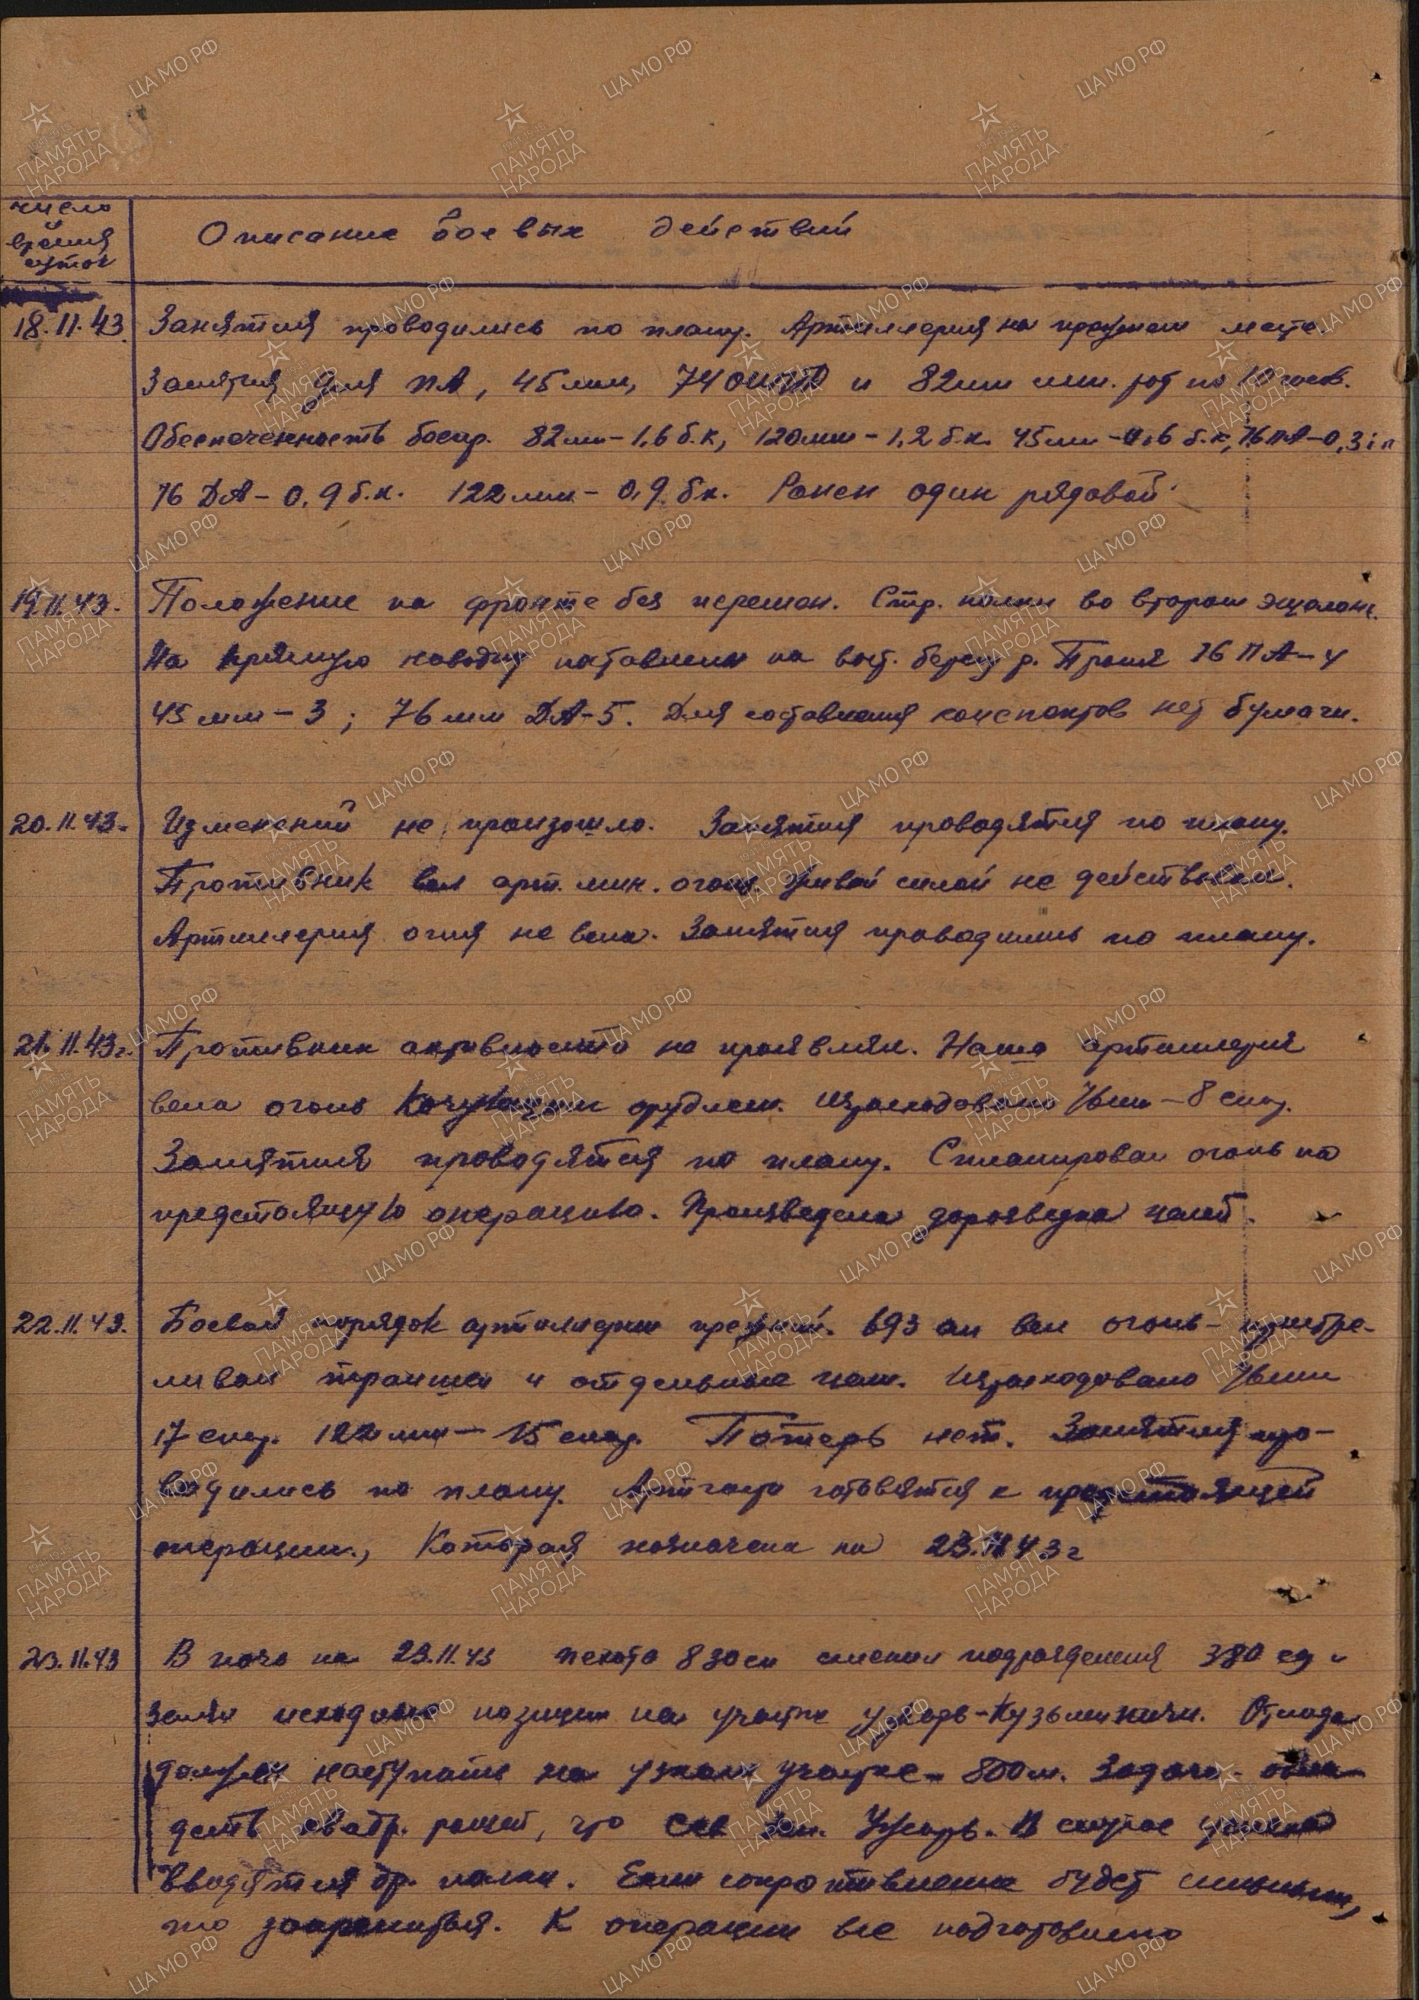 число
и
время
суток
Описание боевых действий
18.11.43. Занятия проводились по плану. Артиллерия на прежнем месте.
Занятия для ПА, 45мм, 74 ОИПТД и 82мм мин. рот по 10 часов.
Обеспеченность боепр. 82мм-1,6 б.к, 120мм-1,2 б.к. 45мм-0,6 б.к, 76 ПА-0,3
76 ДА-0,9 б.к. 122мм-0,9 б.к. Ранен один рядовой.
19.11.43. Положение на фронте без перемен. Стр. полки во втором эшалоне.
На прямую наводку поставлены на вост. берегу р. Проня 76 ПА-4
45мм-3; 76мм ДА-5. Для составления конспектов нет бумаги.
20.11.43. Изменений не произошло. Занятия проводятся по плану.
Противник вел арт. мин. огонь. Живой силой не действовал.
Артиллерия огня не вела. Занятия проводились по плану.
21.11.43г. Противник активности не проявлял. Наша артиллерия
вела огонь кочующим орудием. Израсходовано 76мм-8 снар.
Занятия проводятся по плану. Спланирован огонь на
предстоящую операцию. Произведена доразведка целей.
22.11.43. Боевой порядок артиллерии прежний. 693 ап вел огонь- пристре-
ливал траншеи и отдельные цели. Израсходовано 76мм
17 снар. 122мм-15 снар. Потерь нет. Занятия про-
водились по плану. Артчасти готовятся к предстоящей
операции, которая назначена на 23.11.43г
23.11.43 В ночь на 23.11.43 пехота 830 сп сменил подразделения 380 сд и
занял исходные позиции на участке Ужарь-Кузьминичи. Отсюда
должен наступать на узком участке-800м. Задача- овла-
деть квадр. рощей, что сев зап. Ужарь. В случае успеха
вводятся др. полки. Если сопротивление будет сильным,
то закрепиться. К операции все подготовлено
ЦА МО РФ
ПАМЯТЬ
НАРОДА